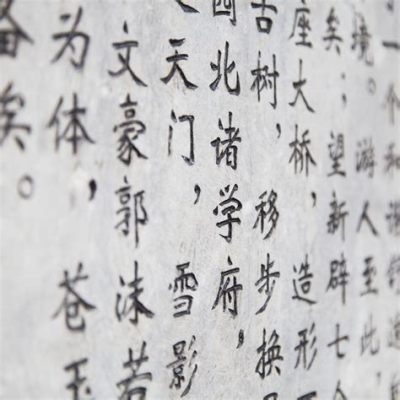 一个和谐舒适
境。游人至此，
矣；望新辟七
座大桥，造形
古树，移步换
国北诸学府，
天门，雪影
文豪郭沫若
为体，苍玉
备矣。